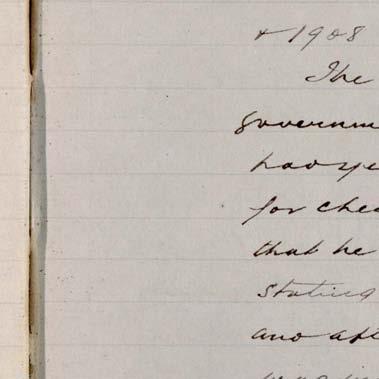 + 1908
The
governm
had ye
for chea
that he
stating
and aft